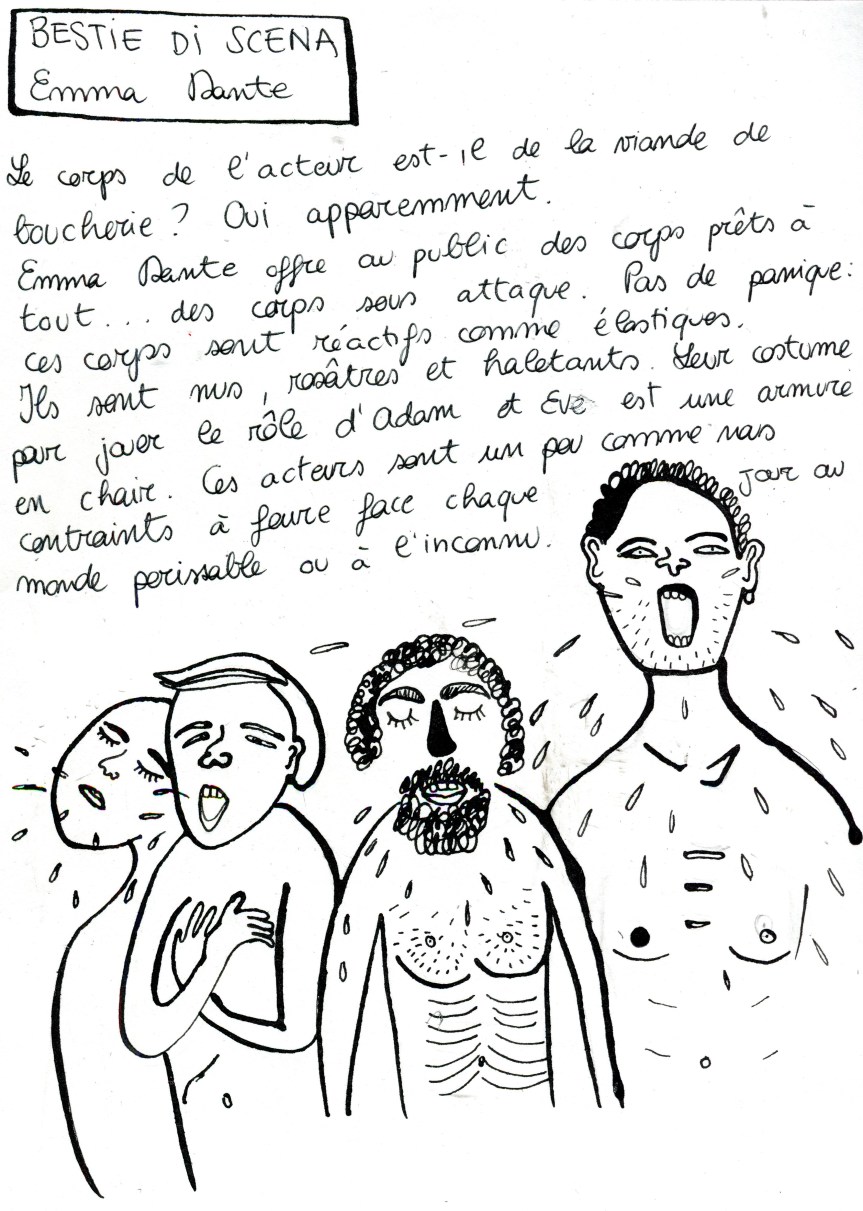 BESTIE Di SCENA
Emma Dante
Le corps de l'acteur est-il de la viande de
boucherie ? Oui apparemment.
Emma Dante offre au public des corps prêts à
tout... des corps sous attaque. Pas de panique:
ces corps sont réactifs comme élastiques.
Ils sont nus, rosâtres et haletants. Leur costume
pour jouer le rôle d'Adam et Eve est une armure
en chair. Ces acteurs sont un peu comme nous
contraints à faire face chaque jour au
monde perissable ou à l'inconnu.